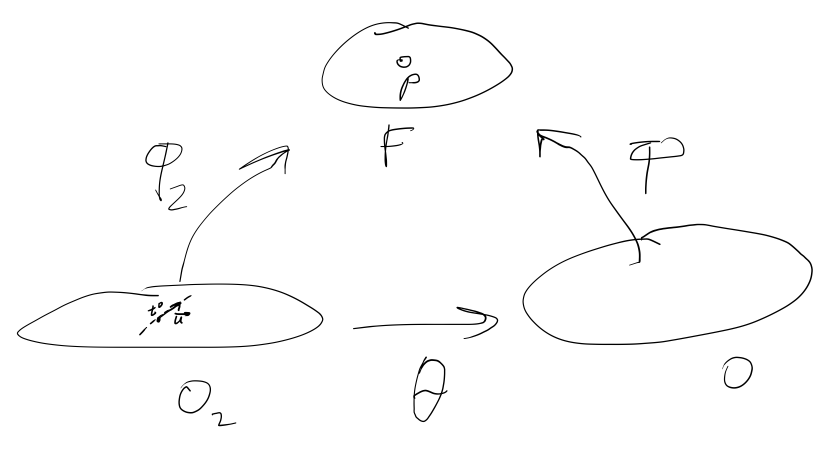 p
F
φ₂
φ
t⁰
u⁰
O₂
θ
O